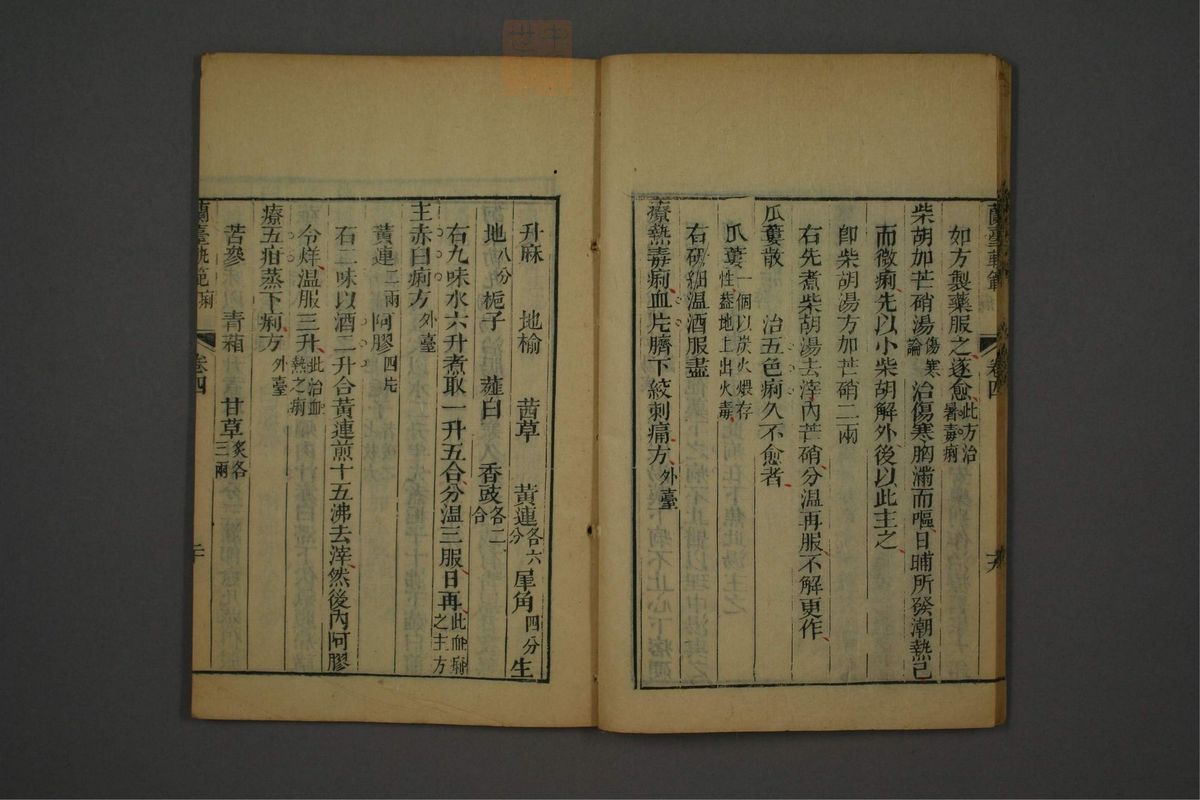 蘭臺軌範 痢 卷四
如方製藥服之遂愈 此方治暑毒痢
柴胡加芒硝湯 傷寒論 治傷寒胸滿而嘔日晡所發潮熱已
而微痢先以小柴胡解外後以此主之
卽柴胡湯方加芒硝二兩
右先煮柴胡湯去滓內芒硝分溫再服不解更作
瓜蔞散 治五色痢久不愈者
瓜蔞 一個以炭火煨存性蓋地上出火毒
右硏細溫酒服盡
療熱毒痢血片臍下絞刺痛方 外臺
升麻 地榆 茜草 黃連 各六分 犀角 四分 生
地 八分 梔子 薤白 香豉 各二合
右九味水六升煮取一升五合分溫三服日再 此血痢之主方
主赤白痢方 外臺
黃連 二兩 阿膠 四片
右二味以酒二升合黃連煎十五沸去滓然後內阿膠
令烊溫服三升 此治血熱之痢
療五疳蒸下痢方 外臺
苦參 青葙 甘草 炙各三兩
蘭臺軌範 痢 卷四 二十